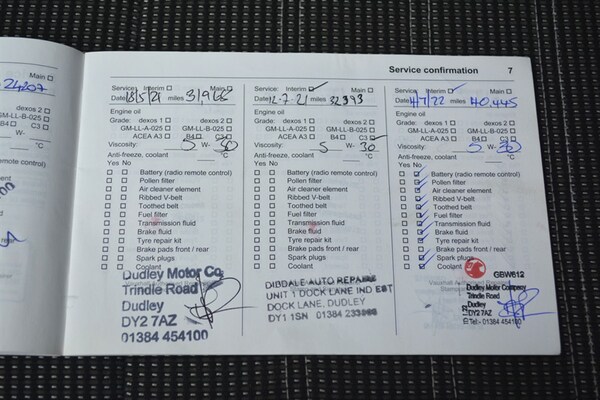 Service confirmation 7
24207
Main
dexos 2
GM-LL-B-025
B4 C3
W-
°C
Service: Interim Main
Date 18/5/21 miles 31,966
Engine oil
Grade: dexos 1 dexos 2
GM-LL-A-025 GM-LL-B-025
ACEA A3 B4 C3
Viscosity: 5 W- 30
Anti-freeze, coolant °C
Yes No
Battery (radio remote control)
Pollen filter
Air cleaner element
Ribbed V-belt
Toothed belt
Fuel filter
Transmission fluid
Brake fluid
Tyre repair kit
Brake pads front / rear
Spark plugs
Coolant
Dudley Motor Co.
Trindle Road
Dudley
DY2 7AZ
01384 454100
Service: Interim Main
Date 12-7-21 miles 32393
Engine oil
Grade: dexos 1 dexos 2
GM-LL-A-025 GM-LL-B-025
ACEA A3 B4 C3
Viscosity: 5 W- 30
Anti-freeze, coolant °C
Yes No
Battery (radio remote control)
Pollen filter
Air cleaner element
Ribbed V-belt
Toothed belt
Fuel filter
Transmission fluid
Brake fluid
Tyre repair kit
Brake pads front / rear
Spark plugs
Coolant
DIBDALE AUTO REPAIRS
UNIT 1 DOCK LANE IND EST
DOCK LANE, DUDLEY
DY1 1SN 01384
Service: Interim Main
Date 4/7/22 miles 40,445
Engine oil
Grade: dexos 1 dexos 2
GM-LL-A-025 GM-LL-B-025
ACEA A3 B4 C3
Viscosity: 5 W- 30
Anti-freeze, coolant °C
Yes No
Battery (radio remote control)
Pollen filter
Air cleaner element
Ribbed V-belt
Toothed belt
Fuel filter
Transmission fluid
Brake fluid
Tyre repair kit
Brake pads front / rear
Spark plugs
Coolant
GBW612
Dudley Motor Company
Trindle Road
Dudley
DY2 7AZ
Tel:- 01384 454100